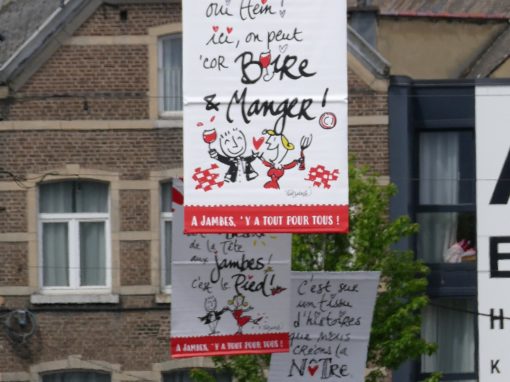 oui Hein!
ici, on peut
'cor BOIRE
& Manger!
A JAMBES, 'Y A TOUT POUR TOUS !
de la Tête
aux
Jambes!
c'est le Pied!
A JAMBES, 'Y A TOUT POUR TOUS !
C'est sur
un tissu
d'histoires
que nous
créons la
NOTRE
A
E
H
K